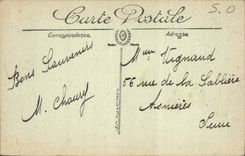 S.O
Carte Postale
Correspondance
Adresse
Bons Souvenirs
M. Chaury
Mme Vignaud
56 rue de la Sablière
Asnières
Seine